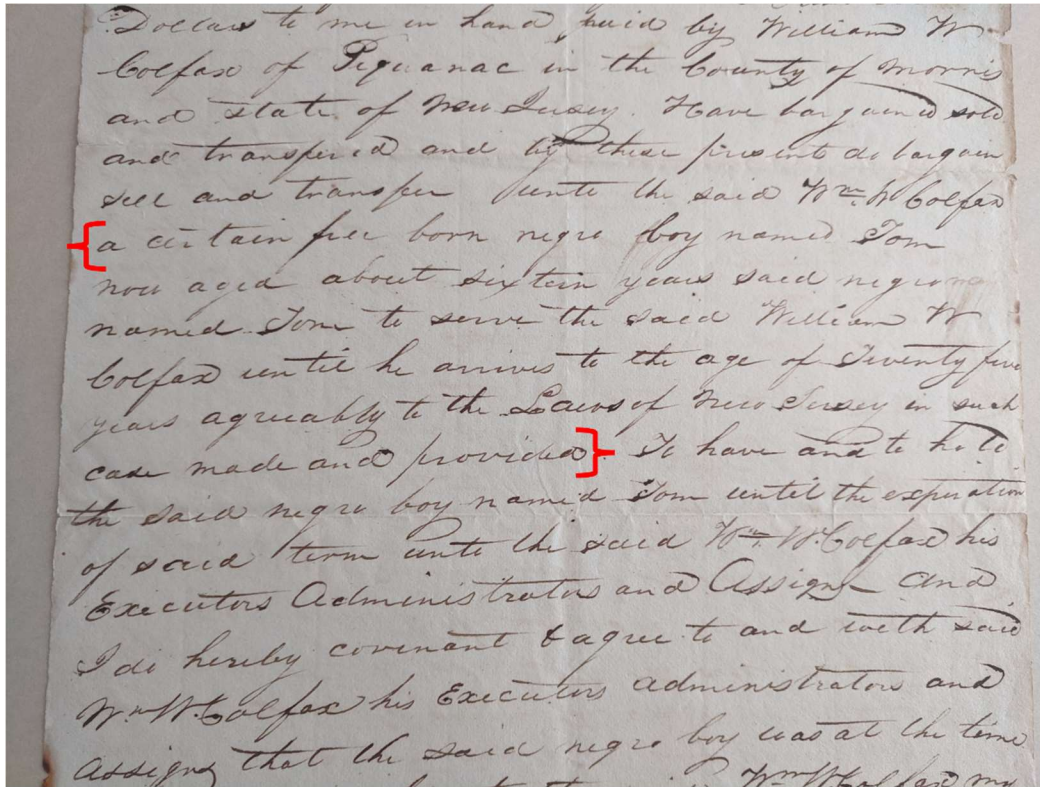 Dollars to me in hand paid by William W
Colfax of Pequanac in the County of Morris
and State of New Jersey. Have bargained sold
and transfered and by these presents do bargain
sell and transfer unto the said Wm W Colfax
a certain free born negro boy named Tom
now aged about sixtein years said negro
named Tom to serve the said William W
Colfax until he arrives to the age of Twenty five
years agreeably to the Laws of New Jersey in such
case made and provided. To have and to hold
the said negro boy named Tom until the experation
of said term unto the said Wm. W. Colfax his
Executors Administrators and Assigns and
I do hereby covenant & agree to and with said
Wm W. Colfax his Executors administrators and
assigns that the said negro boy was at the time
Wm W Colfax my